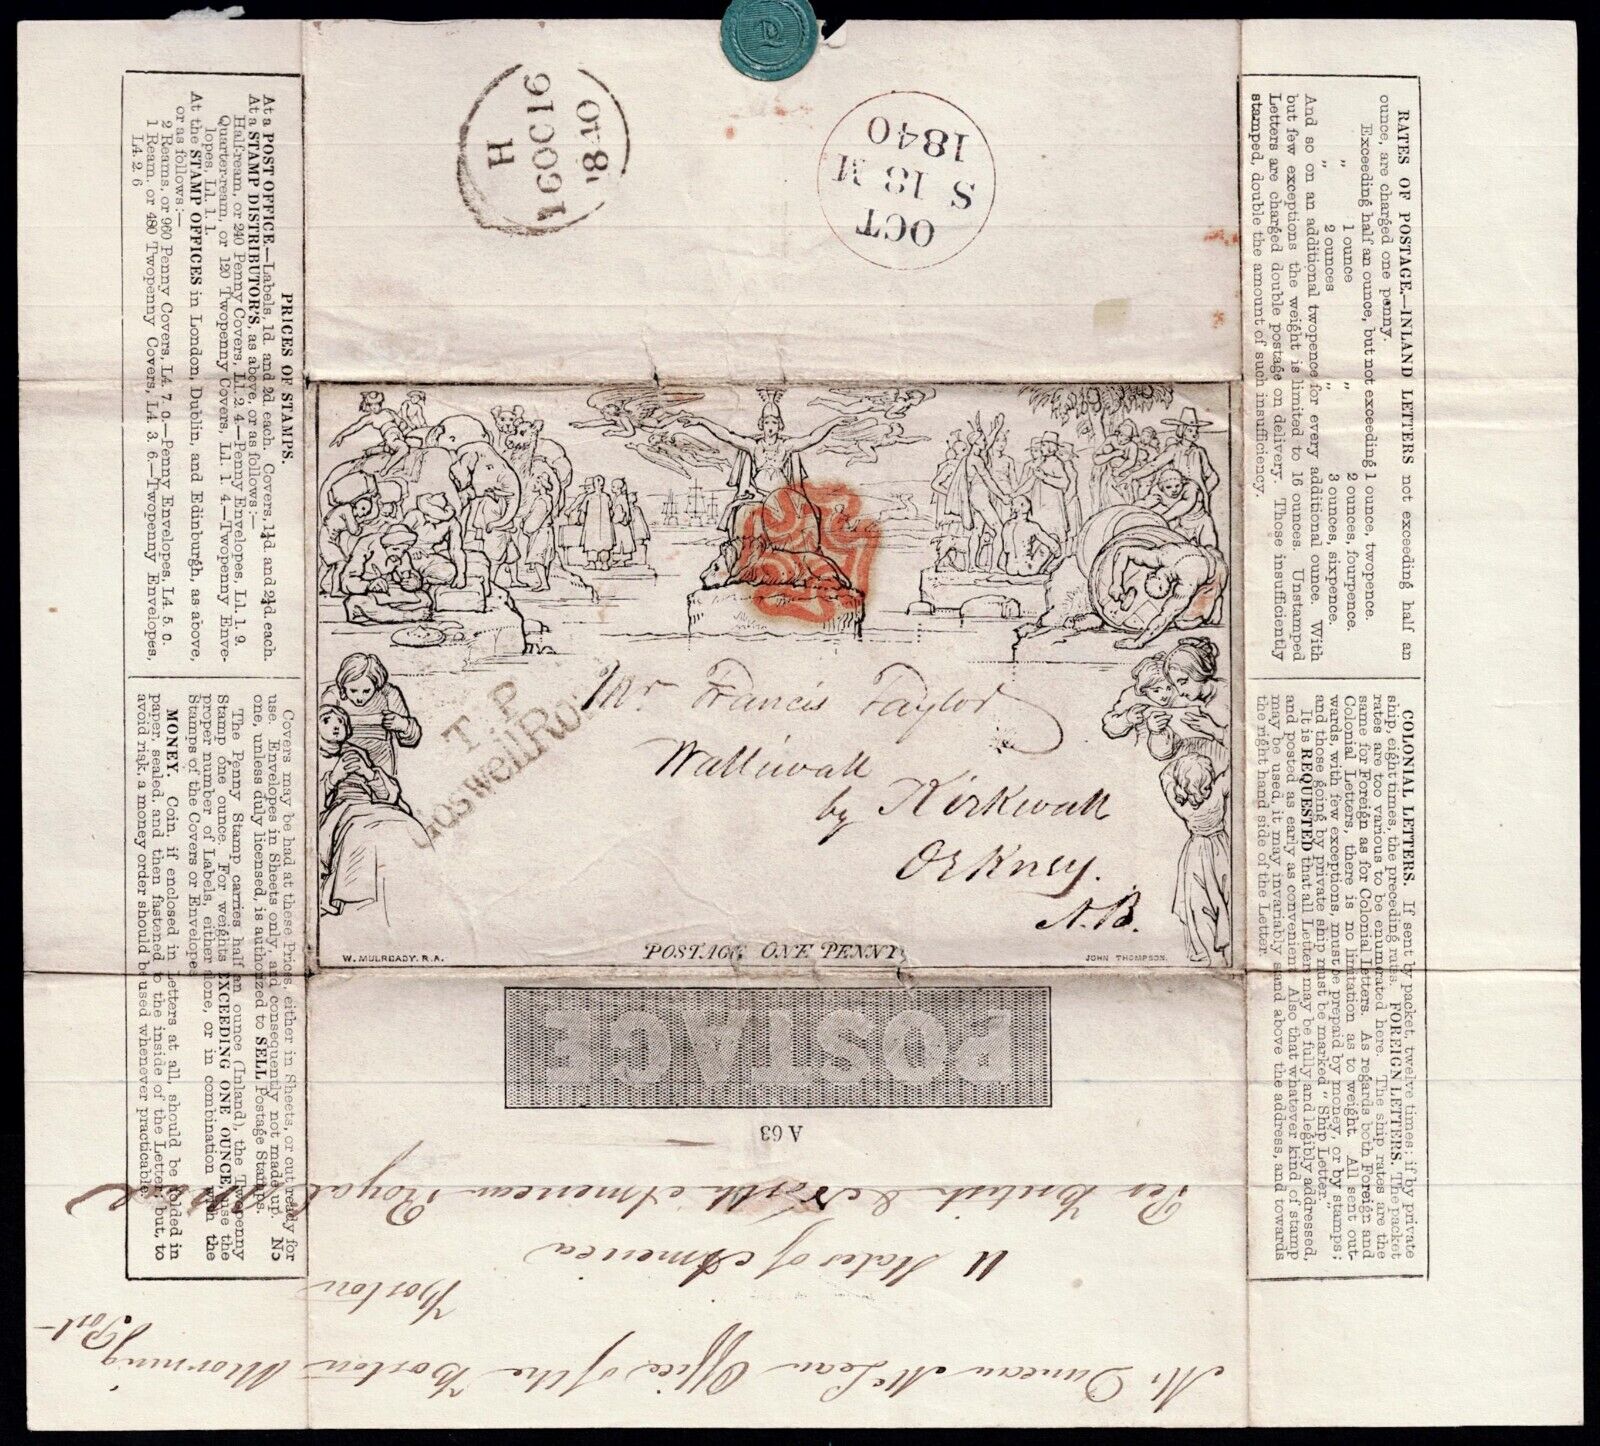 PRICES OF STAMPS.
At a POST OFFICE.—Labels, 1d. and 2d. each. Covers, 1¼d and 2¼d. each.
At a STAMP DISTRIBUTOR'S, as above, or as follows:—
Half-ream, or 240 Penny Covers, L1. 2 4.—Penny Envelopes, L1. 1. 9.
Quarter-ream, or 120 Twopenny Covers, L1. 1 4—Twopenny Enve-
lopes, L1. 1. 1.
At the STAMP OFFICES in London, Dublin, and Edinburgh, as above,
or as follows:—
2 Reams, or 960 Penny Covers, L4. 7. 0.—Penny Envelopes, L4. 5. 0.
1 Ream, or 480 Twopenny Covers, L4. 3. 6.—Twopenny Envelopes,
L4. 2. 6
Covers may be had at these Prices, either in Sheets, or cut ready for
use. Envelopes in Sheets only, and consequently not made up. No
one, unless duly licensed, is authorized to SELL Postage Stamps.
The Penny Stamp carries half an ounce (Inland), the Twopenny
Stamp one ounce. For weights EXCEEDING ONE OUNCE, use the
proper number of Labels, either alone, or in combination with the
Stamps of the Covers or Envelopes
MONEY. Coin, if enclosed in Letters at all, should be folded in
paper, sealed, and then fastened to the inside of the Letter; but, to
avoid risk, a money order should be used whenever practicable.
H
16OC16
1840
OCT
S 18 M
1840
T.P
Goswell Ro
Mr Francis Taylor
Walliwall
by Kirkwall
Orkney.
N.B.
W. MULREADY. R.A.
POSTAGE ONE PENNY.
JOHN THOMPSON.
POSTAGE
A 63
Per British & North American Royal
Mail
U States of America
Boston
Mr Duncan McLean Office of the Boston Morning
Post
RATES OF POSTAGE.—INLAND LETTERS not exceeding half an
ounce, are charged one penny.
Exceeding half an ounce, but not exceeding 1 ounce, twopence.
" 1 ounce " 2 ounces, fourpence.
" 2 ounces " 3 ounces, sixpence.
And so on an additional twopence for every additional ounce. With
but few exceptions the weight is limited to 16 ounces. Unstamped
Letters are charged double postage on delivery. Those insufficiently
stamped, double the amount of such insufficiency.
COLONIAL LETTERS. If sent by packet, twelve times; if by private
ship, eight times, the preceding rates. FOREIGN LETTERS. The packet
rates are too various to be enumerated here. The ship rates are the
same for Foreign as for Colonial Letters. As regards both Foreign and
Colonial Letters, there is no limitation as to weight. All sent out-
wards, with few exceptions, must be prepaid by money, or by stamps;
and those going by private ship must be marked "Ship Letter."
It is REQUESTED that all Letters may be fully and legibly addressed,
and posted as early as convenient. Also that whatever kind of stamp
may be used, it may invariably stand above the address, and towards
the right hand side of the Letter.